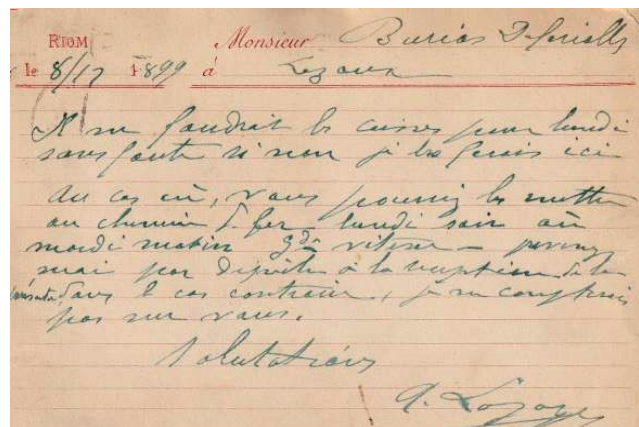 RIOM Monsieur
le 8/17 1899 à Lezoux
Il me faudrait les caisses pour lundi
sans faute si non je les ferais ici
au cas où, vous pourriez les mettre
au chemin de fer lundi soir ou
mardi matin gde vitesse — prévenez
moi par dépêche à la réception de la
présente dans le cas contraire, je ne compterais
pas sur vous.
Salutations